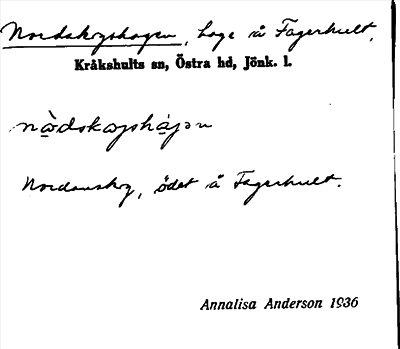 Nordskogshagen, hage å Fagerhult,
Kråkshults sn, Östra hd, Jönk. l.
nɷ̀dskɷgshạ̀gən
Nordanskog, ödet å Fagerhult.
Annalisa Anderson 1936